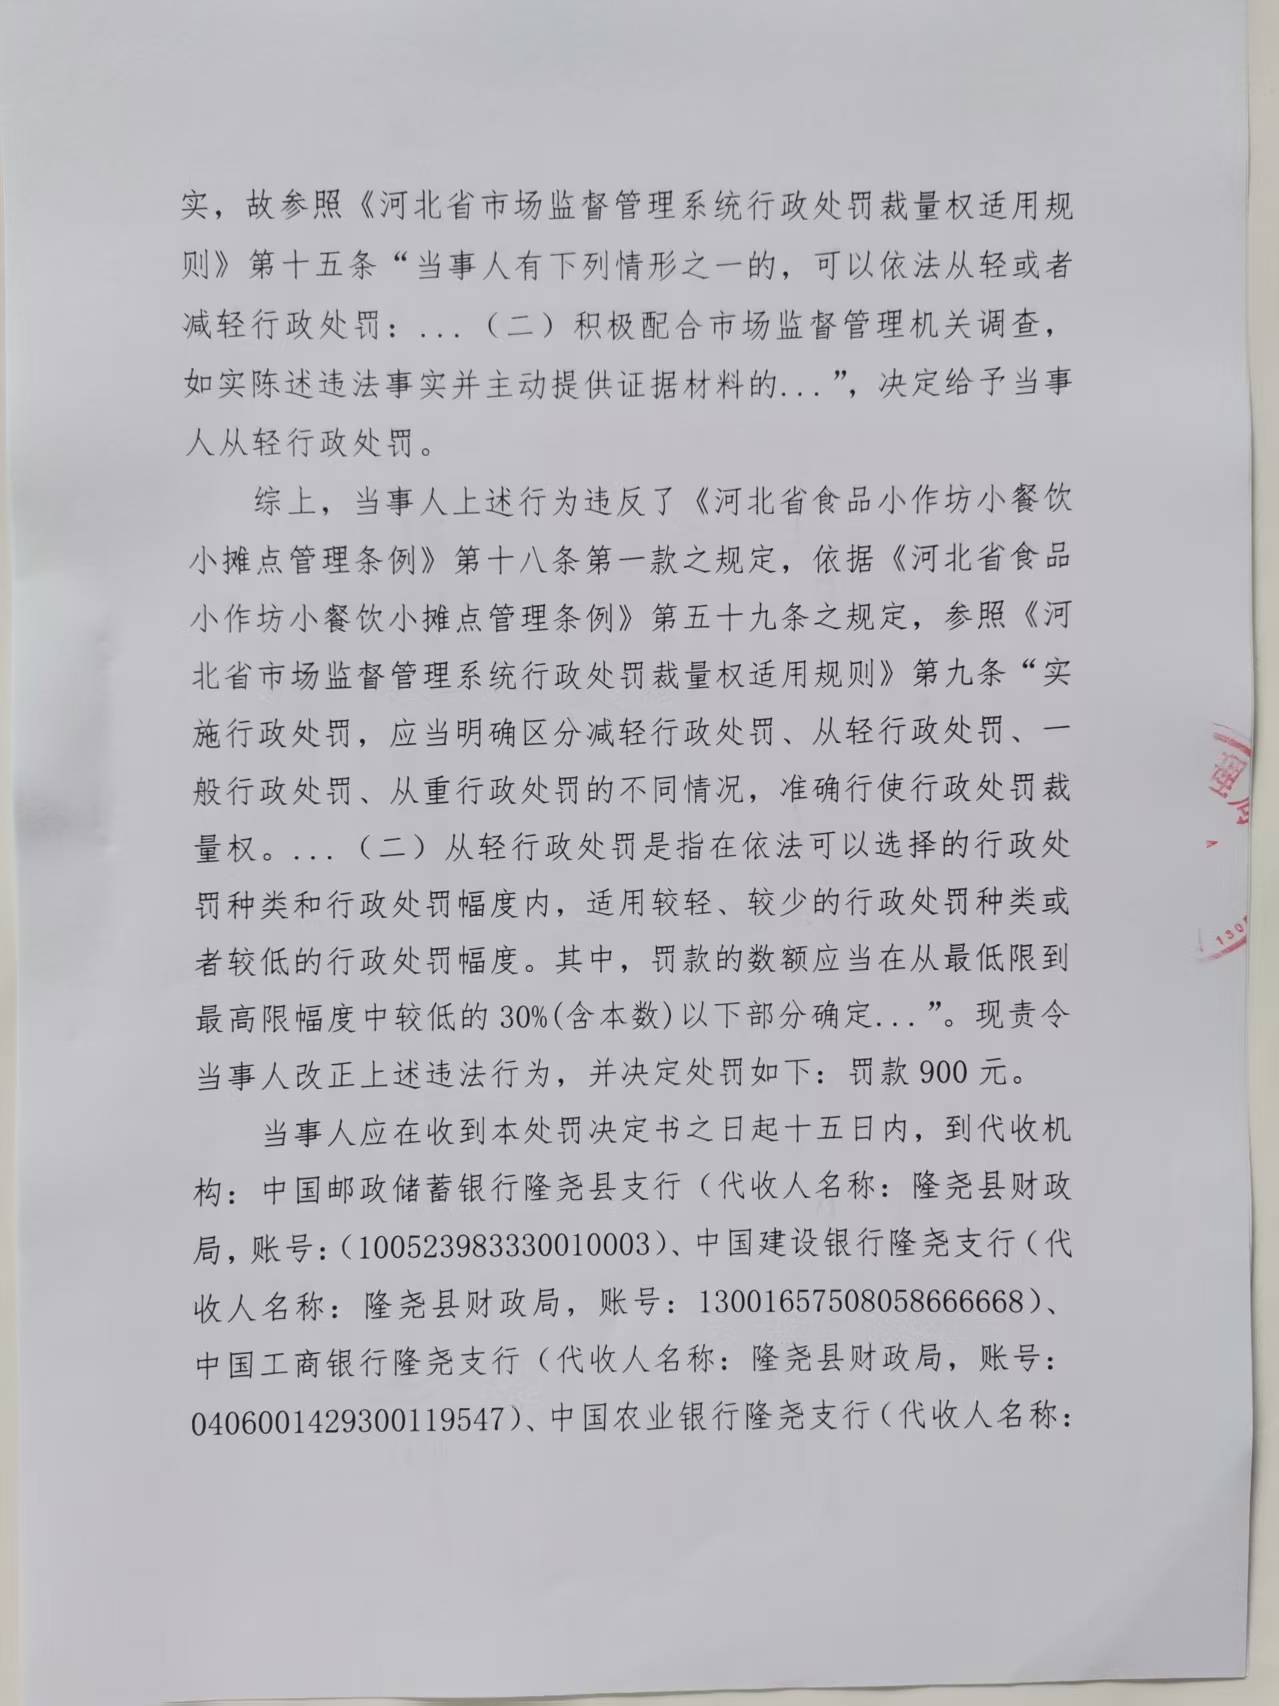 实，故参照《河北省市场监督管理系统行政处罚裁量权适用规
则》第十五条“当事人有下列情形之一的，可以依法从轻或者
减轻行政处罚：...（二）积极配合市场监督管理机关调查，
如实陈述违法事实并主动提供证据材料的...”，决定给予当事
人从轻行政处罚。
综上，当事人上述行为违反了《河北省食品小作坊小餐饮
小摊点管理条例》第十八条第一款之规定，依据《河北省食品
小作坊小餐饮小摊点管理条例》第五十九条之规定，参照《河
北省市场监督管理系统行政处罚裁量权适用规则》第九条“实
施行政处罚，应当明确区分减轻行政处罚、从轻行政处罚、一
般行政处罚、从重行政处罚的不同情况，准确行使行政处罚裁
量权。...（二）从轻行政处罚是指在依法可以选择的行政处
罚种类和行政处罚幅度内，适用较轻、较少的行政处罚种类或
者较低的行政处罚幅度。其中，罚款的数额应当在从最低限到
最高限幅度中较低的30%(含本数)以下部分确定...”。现责令
当事人改正上述违法行为，并决定处罚如下：罚款900元。
当事人应在收到本处罚决定书之日起十五日内，到代收机
构：中国邮政储蓄银行隆尧县支行（代收人名称：隆尧县财政
局，账号：（100523983330010003）、中国建设银行隆尧支行（代
收人名称：隆尧县财政局，账号：13001657508058666668）、
中国工商银行隆尧支行（代收人名称：隆尧县财政局，账号：
0406001429300119547）、中国农业银行隆尧支行（代收人名称：
1305